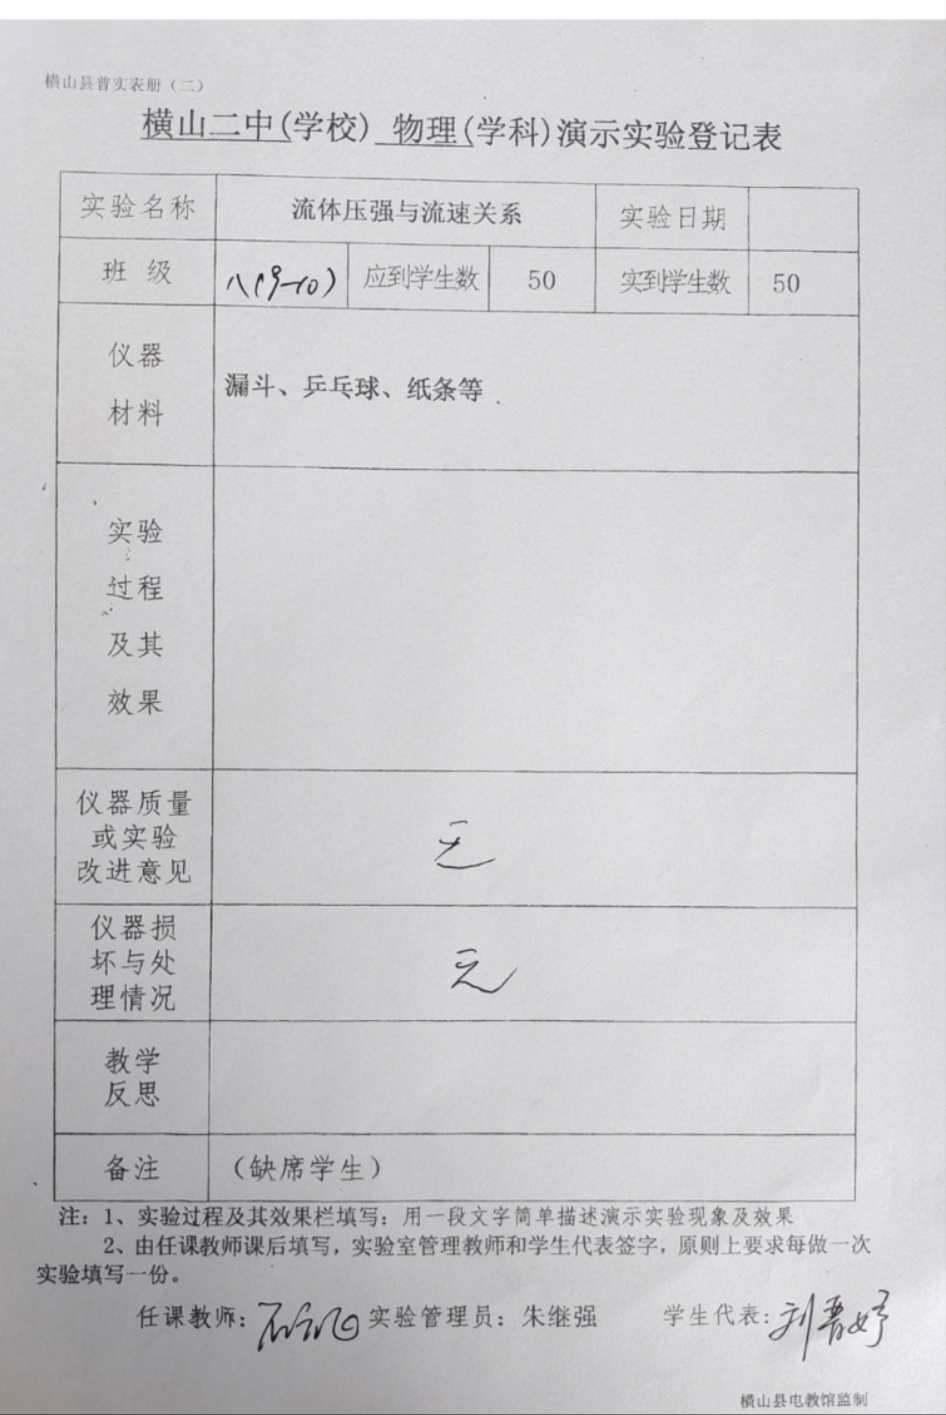 横山县普实表册（二）
横山二中(学校) 物理(学科)演示实验登记表
实验名称 流体压强与流速关系 实验日期
班 级 八(9-10) 应到学生数 50 实到学生数 50
仪器
材料
漏斗、乒乓球、纸条等
实验
过程
及其
效果
仪器质量
或实验
改进意见
无
仪器损
坏与处
理情况
无
教学
反思
备注 （缺席学生）
注：1、实验过程及其效果栏填写：用一段文字简单描述演示实验现象及效果
2、由任课教师课后填写，实验室管理教师和学生代表签字，原则上要求每做一次
实验填写一份。
任课教师： 实验管理员：朱继强 学生代表:刘晋婷
横山县电教馆监制